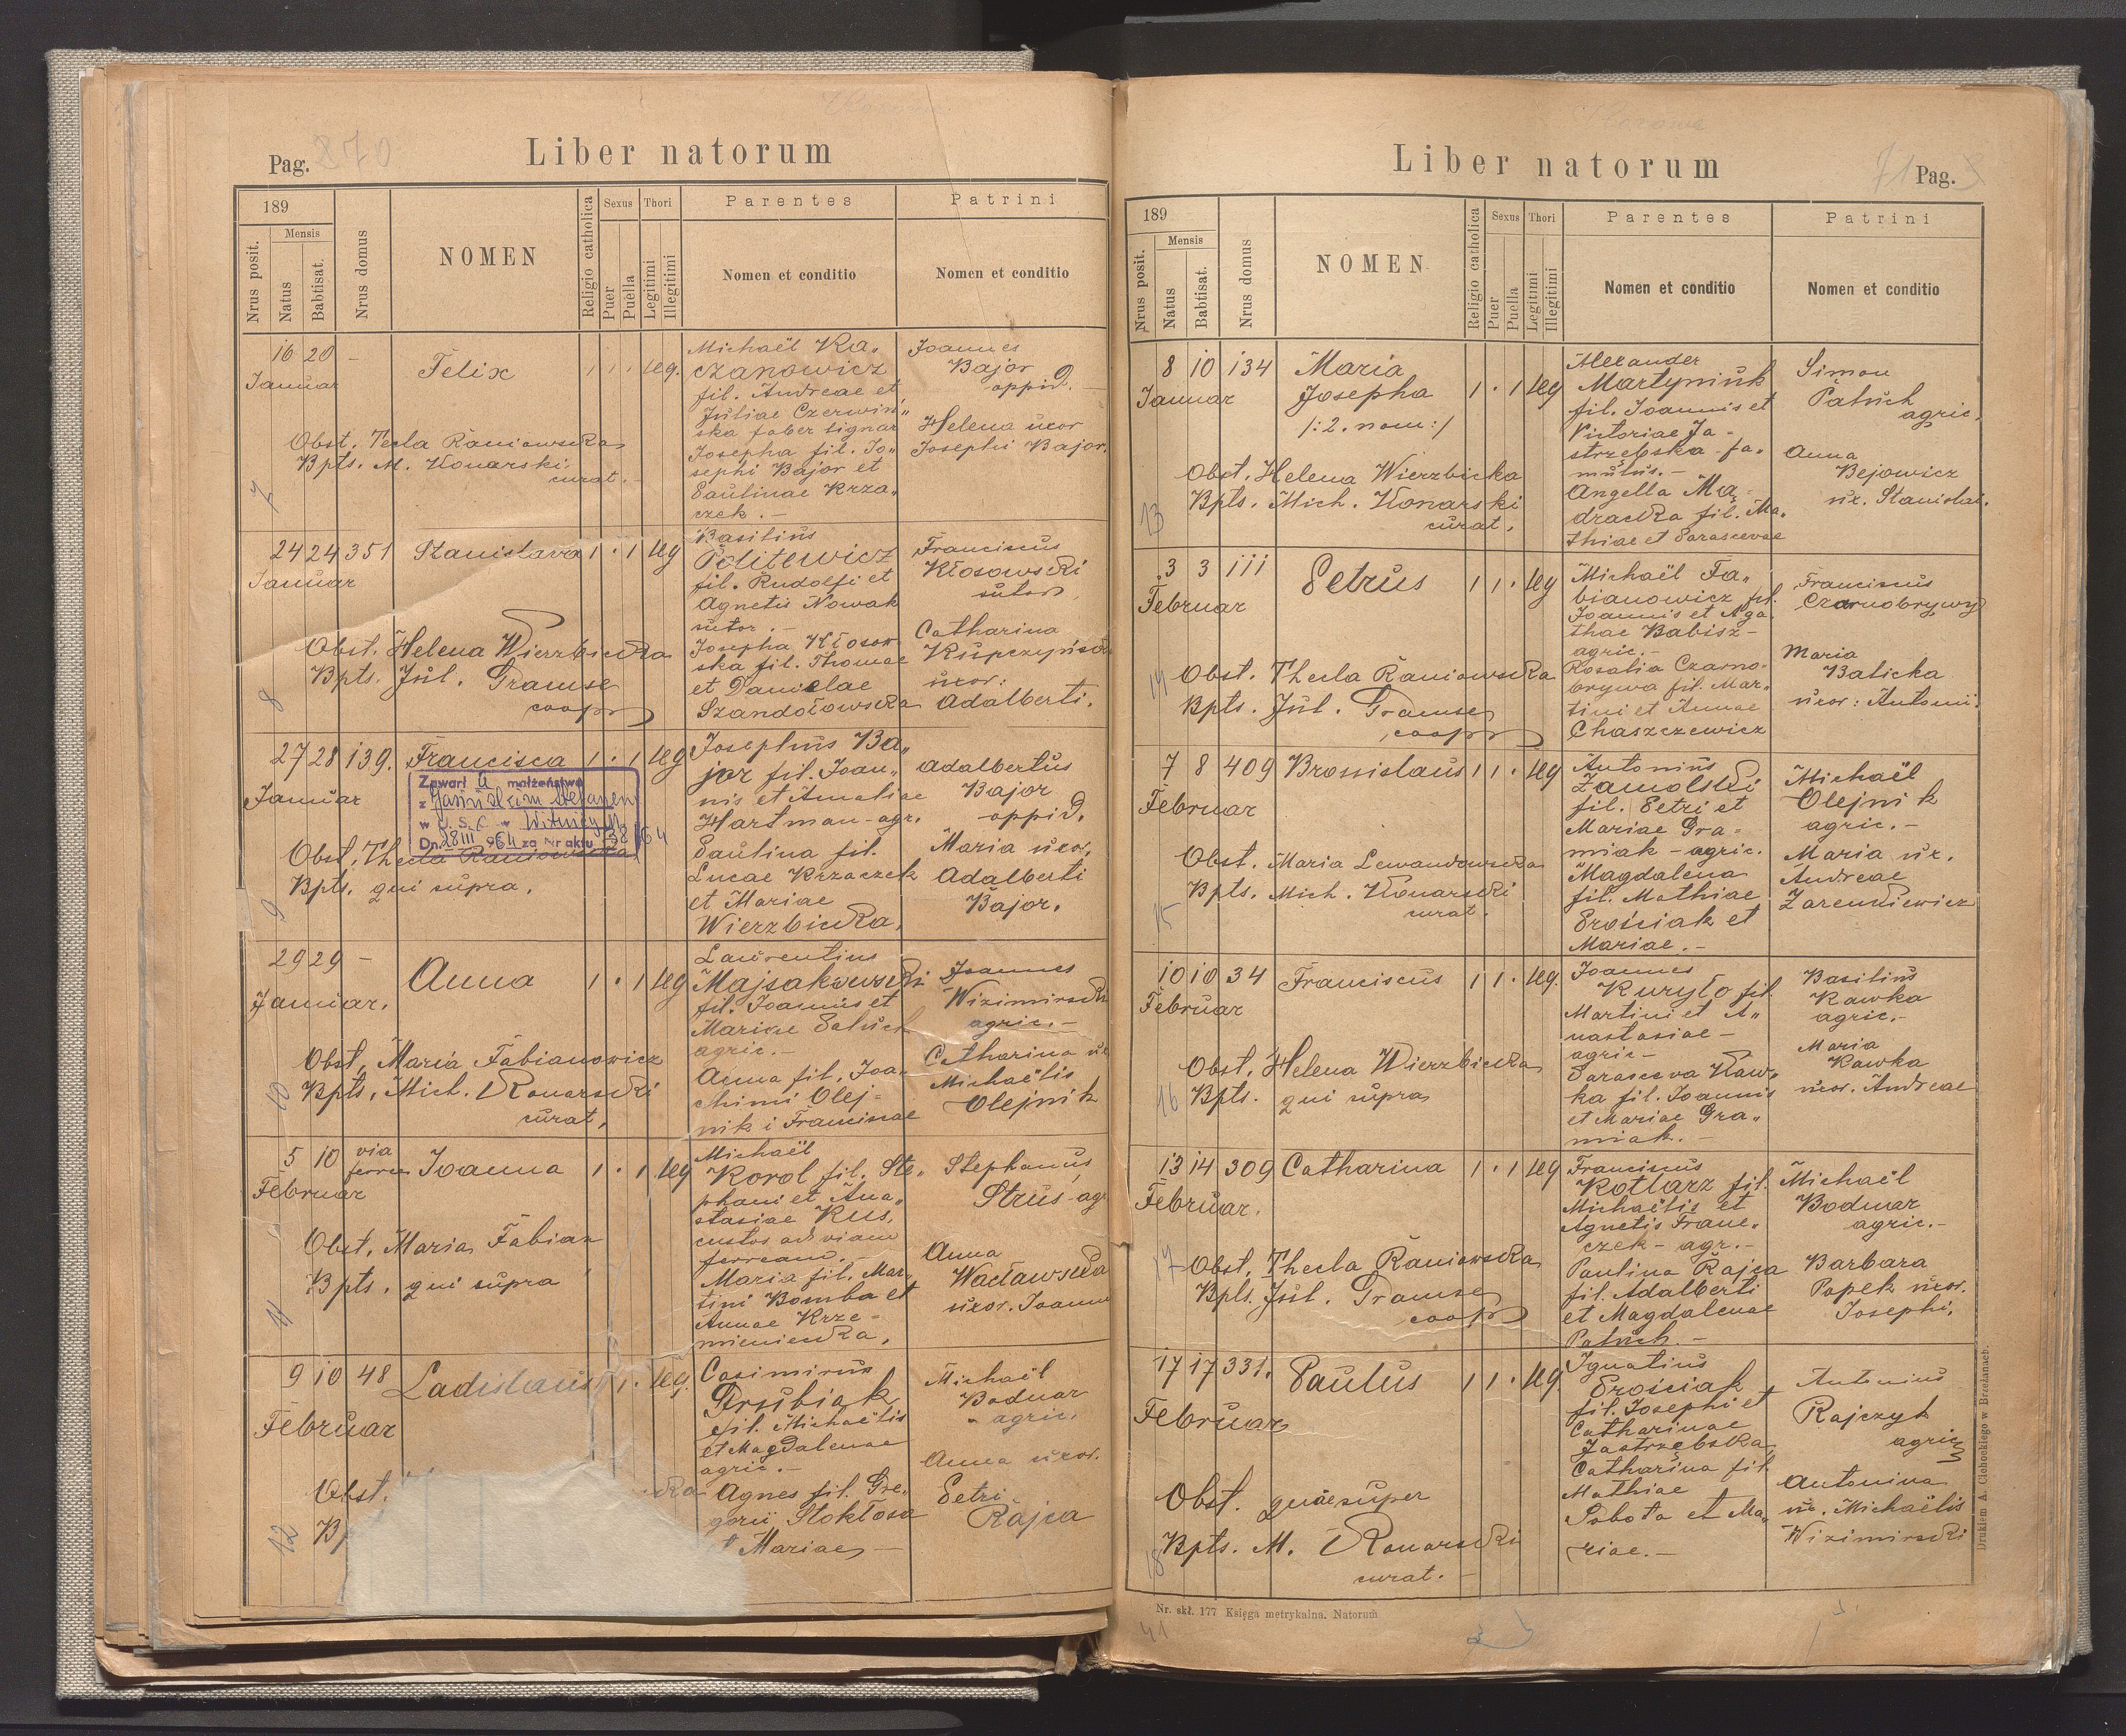 Pag. 270
Liber natorum
189
Nrus posit.
Mensis
Natus
Babtisat.
Nrus domus
NOMEN
Religio catholica
Sexus
Puer
Puella
Thori
Legitimi
Illegitimi
Parentes
Nomen et conditio
Patrini
Nomen et conditio
16 20 - Felix 1 1 · leg.
Januar
Obst. Tecla Raniowska
Bpts. M. Konarski
curat.
7
Michaël Ka„
czanowicz
fil. Andreae et
Juliae Czerwiń„
ska faber lignar
Josepha fil. Jo„
sephi Bajor et
Paulinae Krza„
czek. -
Joannes
Bajor
oppid. -
Helena uxor
Josephi Bajor.
24 24 351 Stanislava 1 · 1 leg
Januar
Obst. Helena Wierzbicka
Bpts. Jul. Gramse
coop
8
Basilius
Politewicz
fil. Rudolfi et
Agnetis Nowak
sutor. -
Josepha Kłosow
ska fil. Thomae
et Danielae
Szandołowska
Franciscus
Kłosowski
sutor
Catharina
uxor:
Adalberti.
27 28 139. Francisca 1 · 1 leg
Januar
Zawarł a małżeństwo
z
w U.S.C. w
Dn. 28 III 964 za Nr aktu 38/64
Obst. Thecla Raniowska
Bpts. qui supra.
9
Josephus Ba„
jor fil. Joan„
nis et Amaliae
Hartman - agr.
Paulina fil.
Lucae Krzaczek
et Mariae
Wierzbicka.
Adalbertus
Bajor
oppid.
Maria uxor.
Adalberti
Bajor.
29 29 - Anna 1 · 1 leg
Januar.
Obst. Maria Fabianowicz
Bpts. Mich. Konarski
curat.
10
Laurentius
Majsakowski
fil. Joannis et
Mariae Patuch
agric. -
Anna fil. Joa„
chimi Olej-
nik i Franciscae
Joannes
Wizimirski
agric. -
Catharina ux
Michaëlis
Olejnik
5 10 via
ferrea Joanna 1 · 1 leg
Februar
Obst. Maria Fabian
Bpts. qui supra
11
Michaël
Korol fil. Ste„
phani et Ana„
stasiae Kus,
custos ad viam
ferream. -
Maria fil. Mar„
tini Bomba et
Annae Krze-
mieniecka.
Stephanus
Strus - agr
Anna
Wacławska
uxor. Joannis
9 10 48 Ladislaus 1 1 · leg.
Februar
Obst.
Bp
12
Casimirus
Grubiak
fil. Michaëlis
et Magdalenae
agric. -
Agnes fil. Gre„
gorii Stokłosa
et Mariae -
Michaël
Bodnar
- agric.
Anna uxor.
Petri
Rajca
Liber natorum
71 Pag. 3
189
Nrus posit.
Mensis
Natus
Babtisat.
Nrus domus
NOMEN
Religio catholica
Sexus
Puer
Puella
Thori
Legitimi
Illegitimi
Parentes
Nomen et conditio
Patrini
Nomen et conditio
8 10 134 Maria
Januar Josepha 1 · 1 leg
/:2. nom:/
Obst. Helena Wierzbicka
Bpts. Mich. Konarski
curat.
13
Alexander
Martyniuk
fil. Joannis et
Victoriae Ja-
strzębska - fa„
mulus. -
Angella Mą-
dracka fil. Ma„
thiae et Parascevae
Simon
Patuch
agric.
Anna
Bejowicz
ux. Stanislai.
3 3 111 Petrus 1 1 · leg
Februar
Obst. Thecla Raniowska
Bpts. Jul. Gramse
coop
14
Michaël Fa„
bianowicz fil.
Joannis et Aga
thae Babisz -
agric. -
Rosalia Czarno-
brywa fil. Mar„
tini et Annae
Chaszczewicz
Franciscus
Czarnobrywy
Maria
Balicka
uxor: Antonii.
7 8 409 Bronislaus 1 1 · leg
Februar
Obst. Maria Lewandowska
Bpts. Mich. Konarski
curat.
15
Antonius
Zamolski
fil. Petri et
Mariae Gra-
miak - agric.
Magdalena
fil. Mathiae
Prościak et
Mariae. -
Michaël
Olejnik
agric. -
Maria ux.
Andreae
Zarenkiewicz
10 10 34 Franciscus 1 1 · leg.
Februar
Obst. Helena Wierzbicka
Bpts. qui supra
16
Joannes
Kuryło fil.
Martini et A„
nastasiae -
agric -
Parasceva Kaw„
ka fil. Joannis
et Mariae Gra„
miak. -
Basilius
Kawka
agric. -
Maria
Kawka
uxor. Andreae
13 14 309 Catharina 1 · 1 leg
Februar.
17
Obst. Thecla Raniowska
Bpts. Jul. Gramse
coop
Franciscus
Kotlarz fil.
Michaëlis et
Agnetis Frane„
czek - agr. -
Paulina Rajca
fil. Adalberti
et Magdalenae
Patuch. -
Michaël
Bodnar
agric. -
Barbara
Popek uxor.
Josephi.
17 17 331. Paulus 1 1 · leg.
Februar
Obst. quae super
Bpts. M. Konarski
curat. -
18
Ignatius
Prościak
fil. Josephi et
Catharinae
Jastrzębska,
Catharina fil.
Mathiae
Sobota et Ma„
riae. -
Antonius
Rajczyk
agric
Antonina
ux. Michaëlis
Wizimirski
Nr. skł. 177 Księga metrykalna. Natorum
Drukiem A. Cichockiego w Brzeżanach.
41